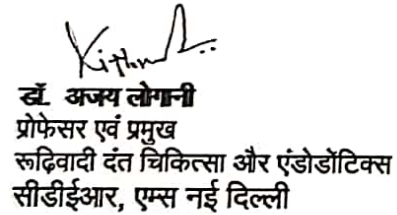 डॉ. अजय लोगानी
प्रोफेसर एवं प्रमुख
रूढ़िवादी दंत चिकित्सा और एंडोडोंटिक्स
सीडीईआर, एम्स नई दिल्ली